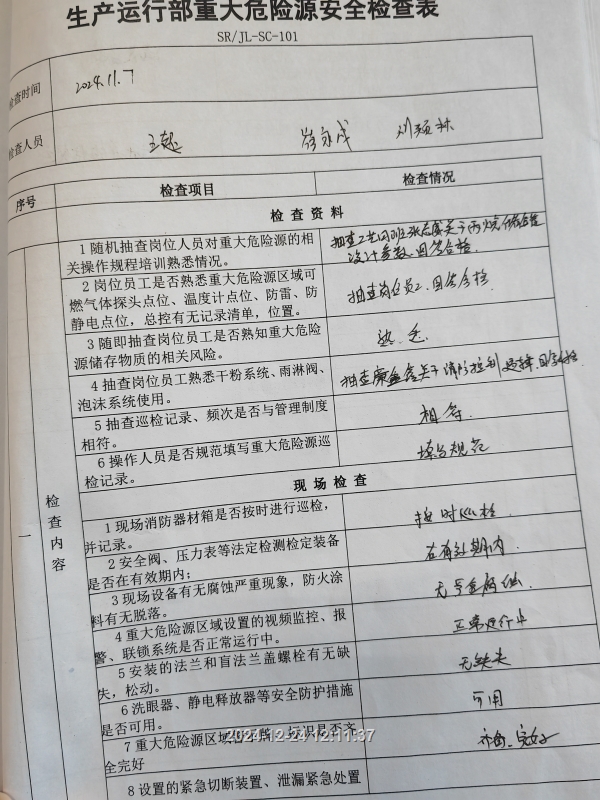 生产运行部重大危险源安全检查表
SR/JL-SC-101
检查时间
2024.11.7
检查人员
王越
序号
检查项目
检查情况
检查资料
1 随机抽查岗位人员对重大危险源的相
关操作规程培训熟悉情况。
设计参数,回答合格.
2 岗位员工是否熟悉重大危险源区域可
燃气体探头点位、温度计点位、防雷、防
静电点位，总控有无记录清单，位置。
抽查岗位员工,回答合格.
3 随即抽查岗位员工是否熟知重大危险
源储存物质的相关风险。
熟悉
4 抽查岗位员工熟悉干粉系统、雨淋阀、
泡沫系统使用。
5 抽查巡检记录、频次是否与管理制度
相符。
相符.
6 操作人员是否规范填写重大危险源巡
检记录。
填写规范
现场检查
一
检查内容
1 现场消防器材箱是否按时进行巡检，
并记录。
按时巡检
2 安全阀、压力表等法定检测检定装备
是否在有效期内；
在有效期内.
3 现场设备有无腐蚀严重现象，防火涂
料有无脱落。
4 重大危险源区域设置的视频监控、报
警、联锁系统是否正常运行中。
正常运行中
5 安装的法兰和盲法兰盖螺栓有无缺
失，松动。
无缺失
6 洗眼器、静电释放器等安全防护措施
是否可用。
可用
7 重大危险源区域 标识是否齐
全完好
齐全、完好
2024-12-24 12:11:37
8 设置的紧急切断装置、泄漏紧急处置